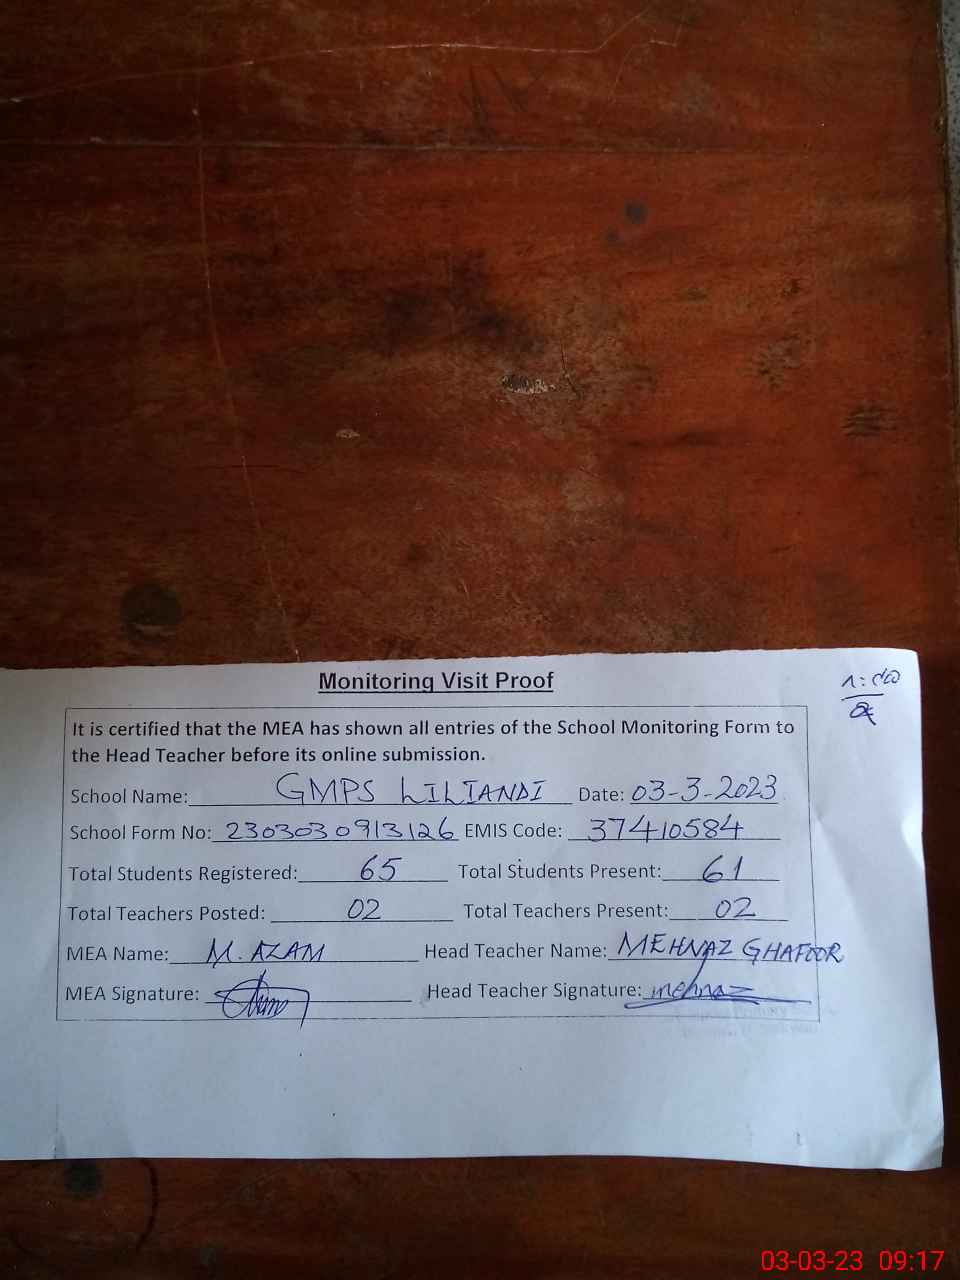 Monitoring Visit Proof
It is certified that the MEA has shown all entries of the School Monitoring Form to
the Head Teacher before its online submission.
School Name: GMPS LILIANDI Date: 03-3-2023
School Form No: 2303030913126 EMIS Code: 37410584
Total Students Registered: 65 Total Students Present: 61
Total Teachers Posted: 02 Total Teachers Present: 02
MEA Name: M. AZAM Head Teacher Name: MEHNAZ GHAFOOR
MEA Signature: Head Teacher Signature: mehnaz
03-03-23 09:17